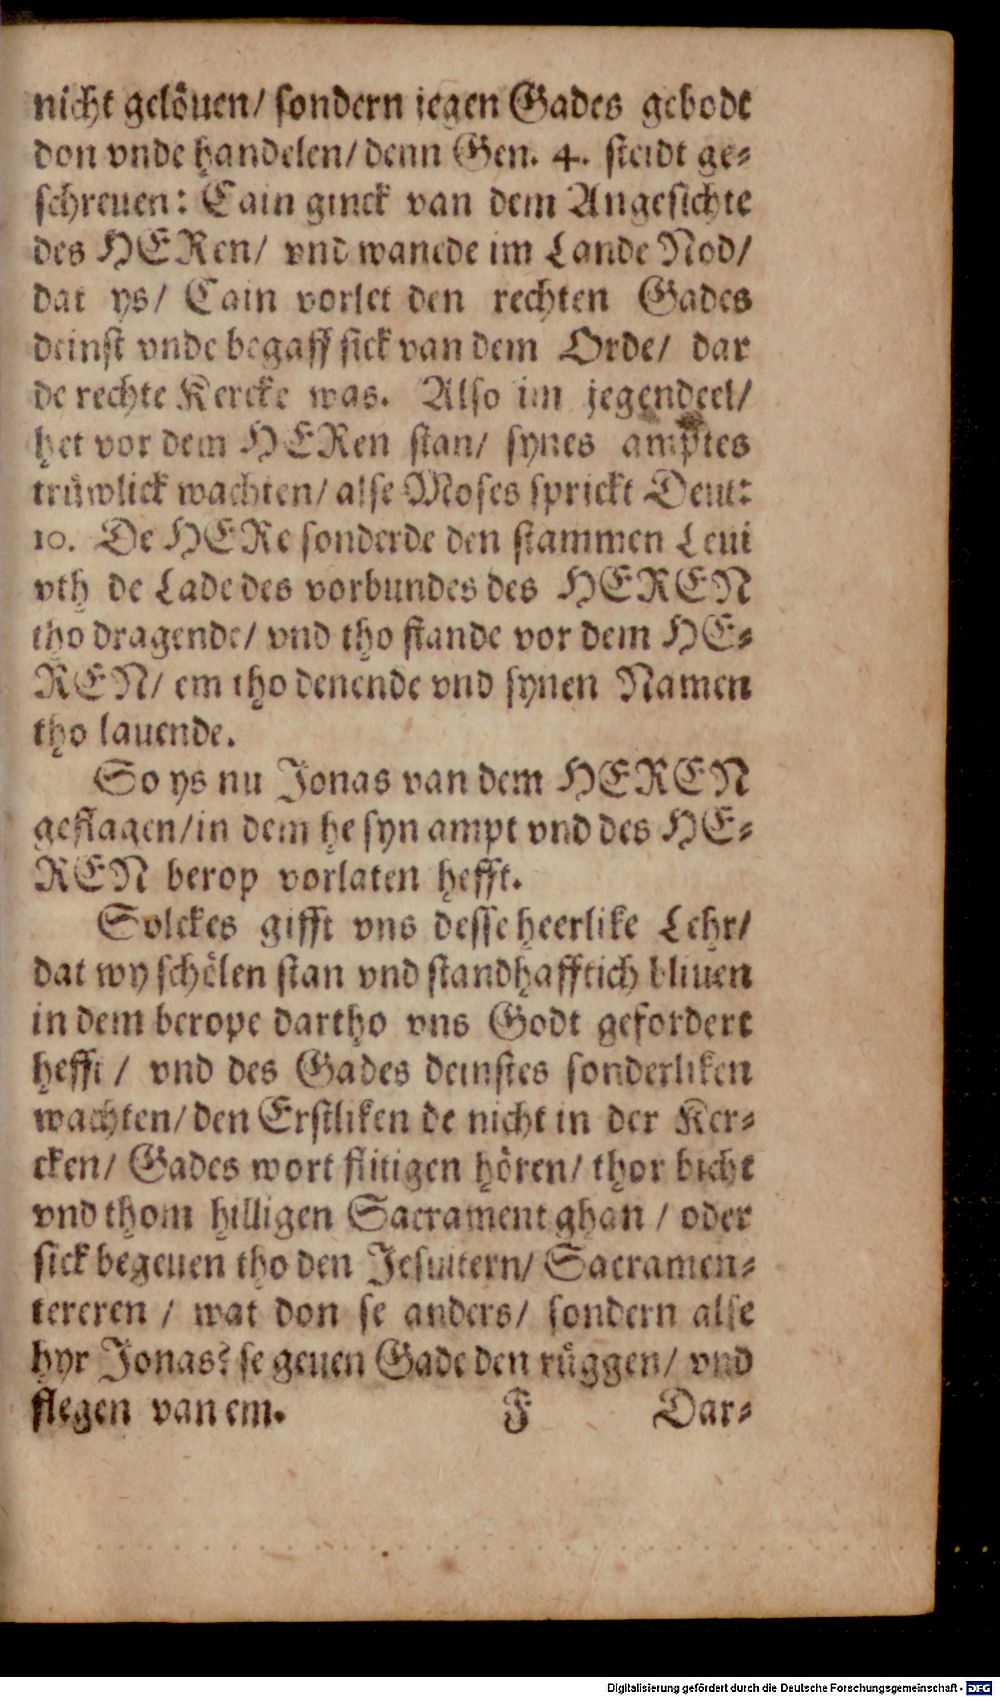 nicht gelöuen/ sondern iegen Gades gebodt
don vnde handelen/ denn Gen. 4. steidt ge-
schreuen: Cain ginck van dem Angesichte
des HERen/ vnd wanede im Lande Nod/
dat ys/ Cain vorlet den rechten Gades
deinst vnde begaff sick van dem Orde/ dar
de rechte Kercke was. Also im jegendeel/
het vor dem HERen stan/ synes amptes
trüwlick wachten/ alse Moses sprickt Deut:
10. De HERe sonderde den stammen Leui
vth de Lade des vorbundes des HEREN
tho dragende/ vnd tho stande vor dem HE-
REN/ em tho denende vnd synen Namen
tho lauende.
So ys nu Jonas van dem HEREN
geflagen/ in dem he syn ampt vnd des HE-
REN berop vorlaten hefft.
Solckes gifft vns desse heerlike Lehr/
dat wy schölen stan vnd standhafftich bliuen
in dem berope dartho vns Godt gefordert
hefft / vnd des Gades deinstes sonderliken
wachten/ den Erstliken de nicht in der Ker-
cken/ Gades wort flitigen hören/ thor bicht
vnd thom hilligen Sacrament ghan / oder
sick begeuen tho den Jesuitern/ Sacramen-
tereren / wat don se anders/ sondern alse
hyr Jonas? se geuen Gade den rüggen/ vnd
flegen van em. F Dar-
Digitalisierung gefördert durch die Deutsche Forschungsgemeinschaft - DFG